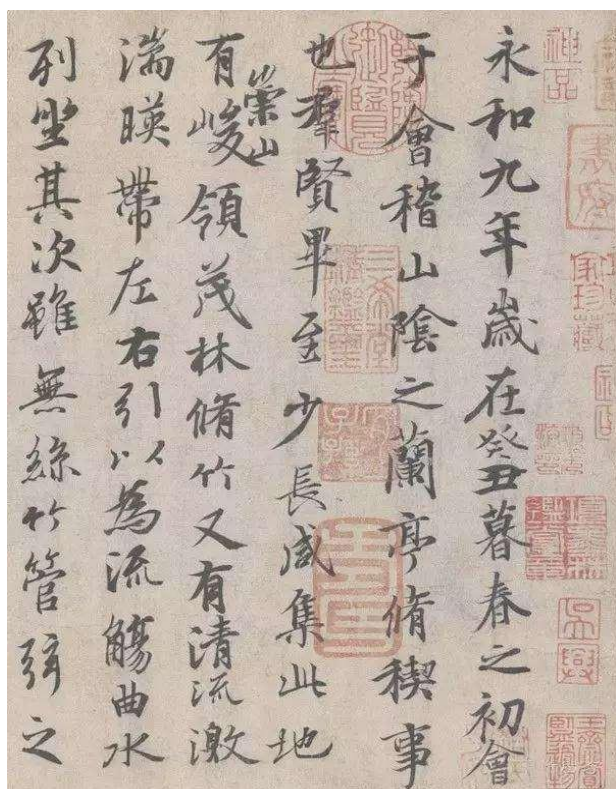 神品
永和九年歲在癸丑暮春之初會
于會稽山陰之蘭亭脩稧事
也羣賢畢至少長咸集此地
有崇山峻領茂林脩竹又有清流激
湍暎帶左右引以為流觴曲水
列坐其次雖無絲竹管弦之
三希堂精鑑璽
宜子孫